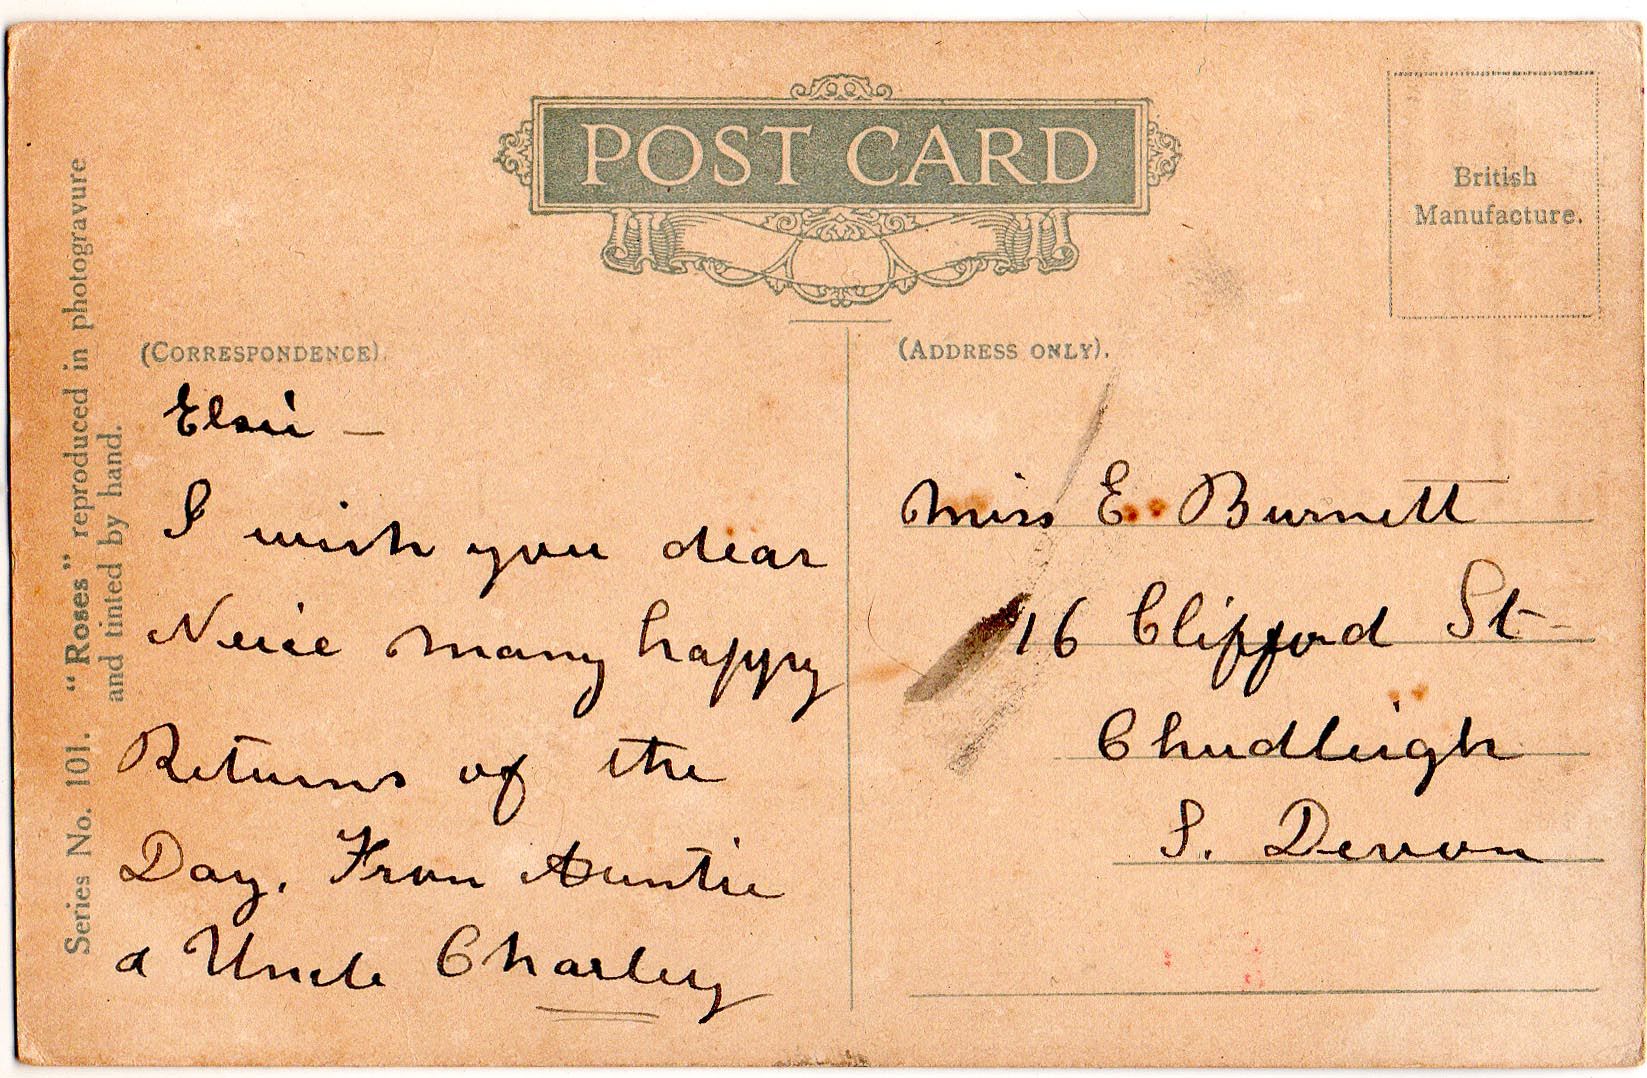 POST CARD
British
Manufacture.
Series No. 101. "Roses" reproduced in photogravure
and tinted by hand.
(CORRESPONDENCE).
Elsie —
I wish you dear
Neice many happy
Returns of the
Day. From Auntie
& Uncle Charley
(ADDRESS ONLY).
Miss E. Burnett
16 Clifford St
Chudleigh
S. Devon